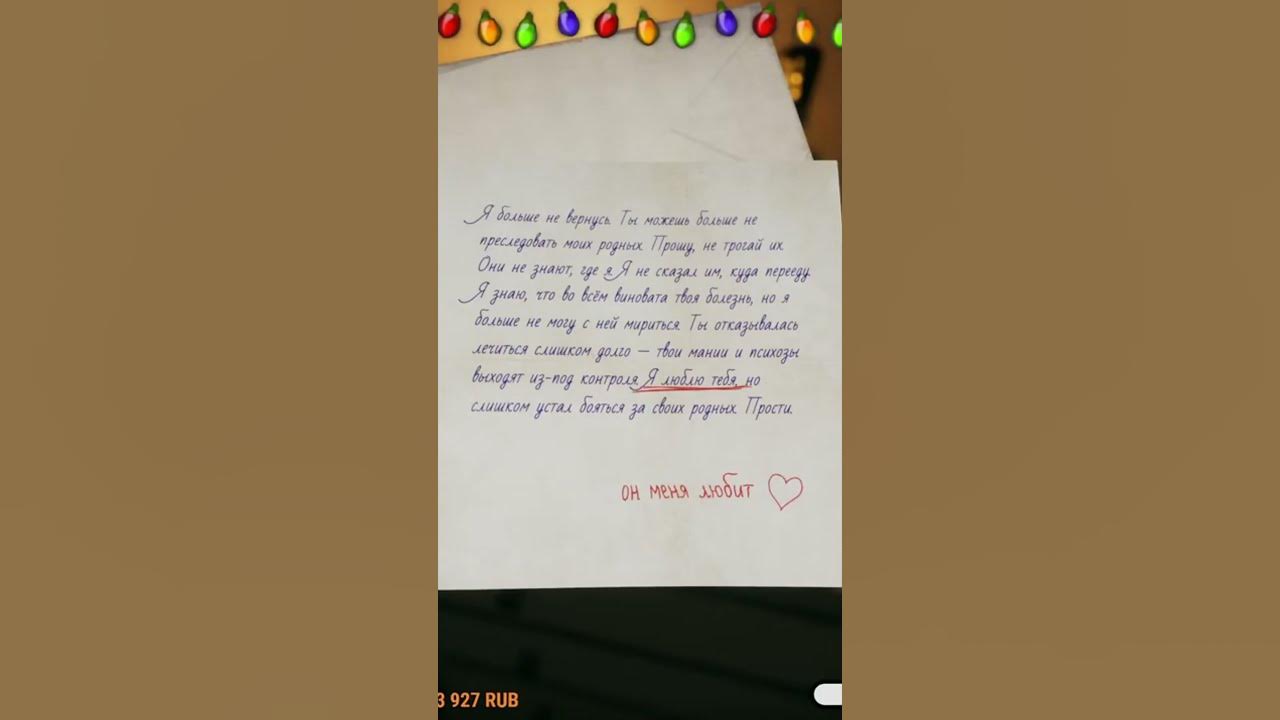 Я больше не вернусь. Ты можешь больше не
преследовать моих родных. Прошу, не трогай их.
Они не знают, где я. Я не сказал им, куда перееду.
Я знаю, что во всём виновата твоя болезнь, но я
больше не могу с ней мириться. Ты отказывалась
лечиться слишком долго — твои мании и психозы
выходят из-под контроля. Я люблю тебя, но
слишком устал бояться за своих родных. Прости.
он меня любит
3 927 RUB